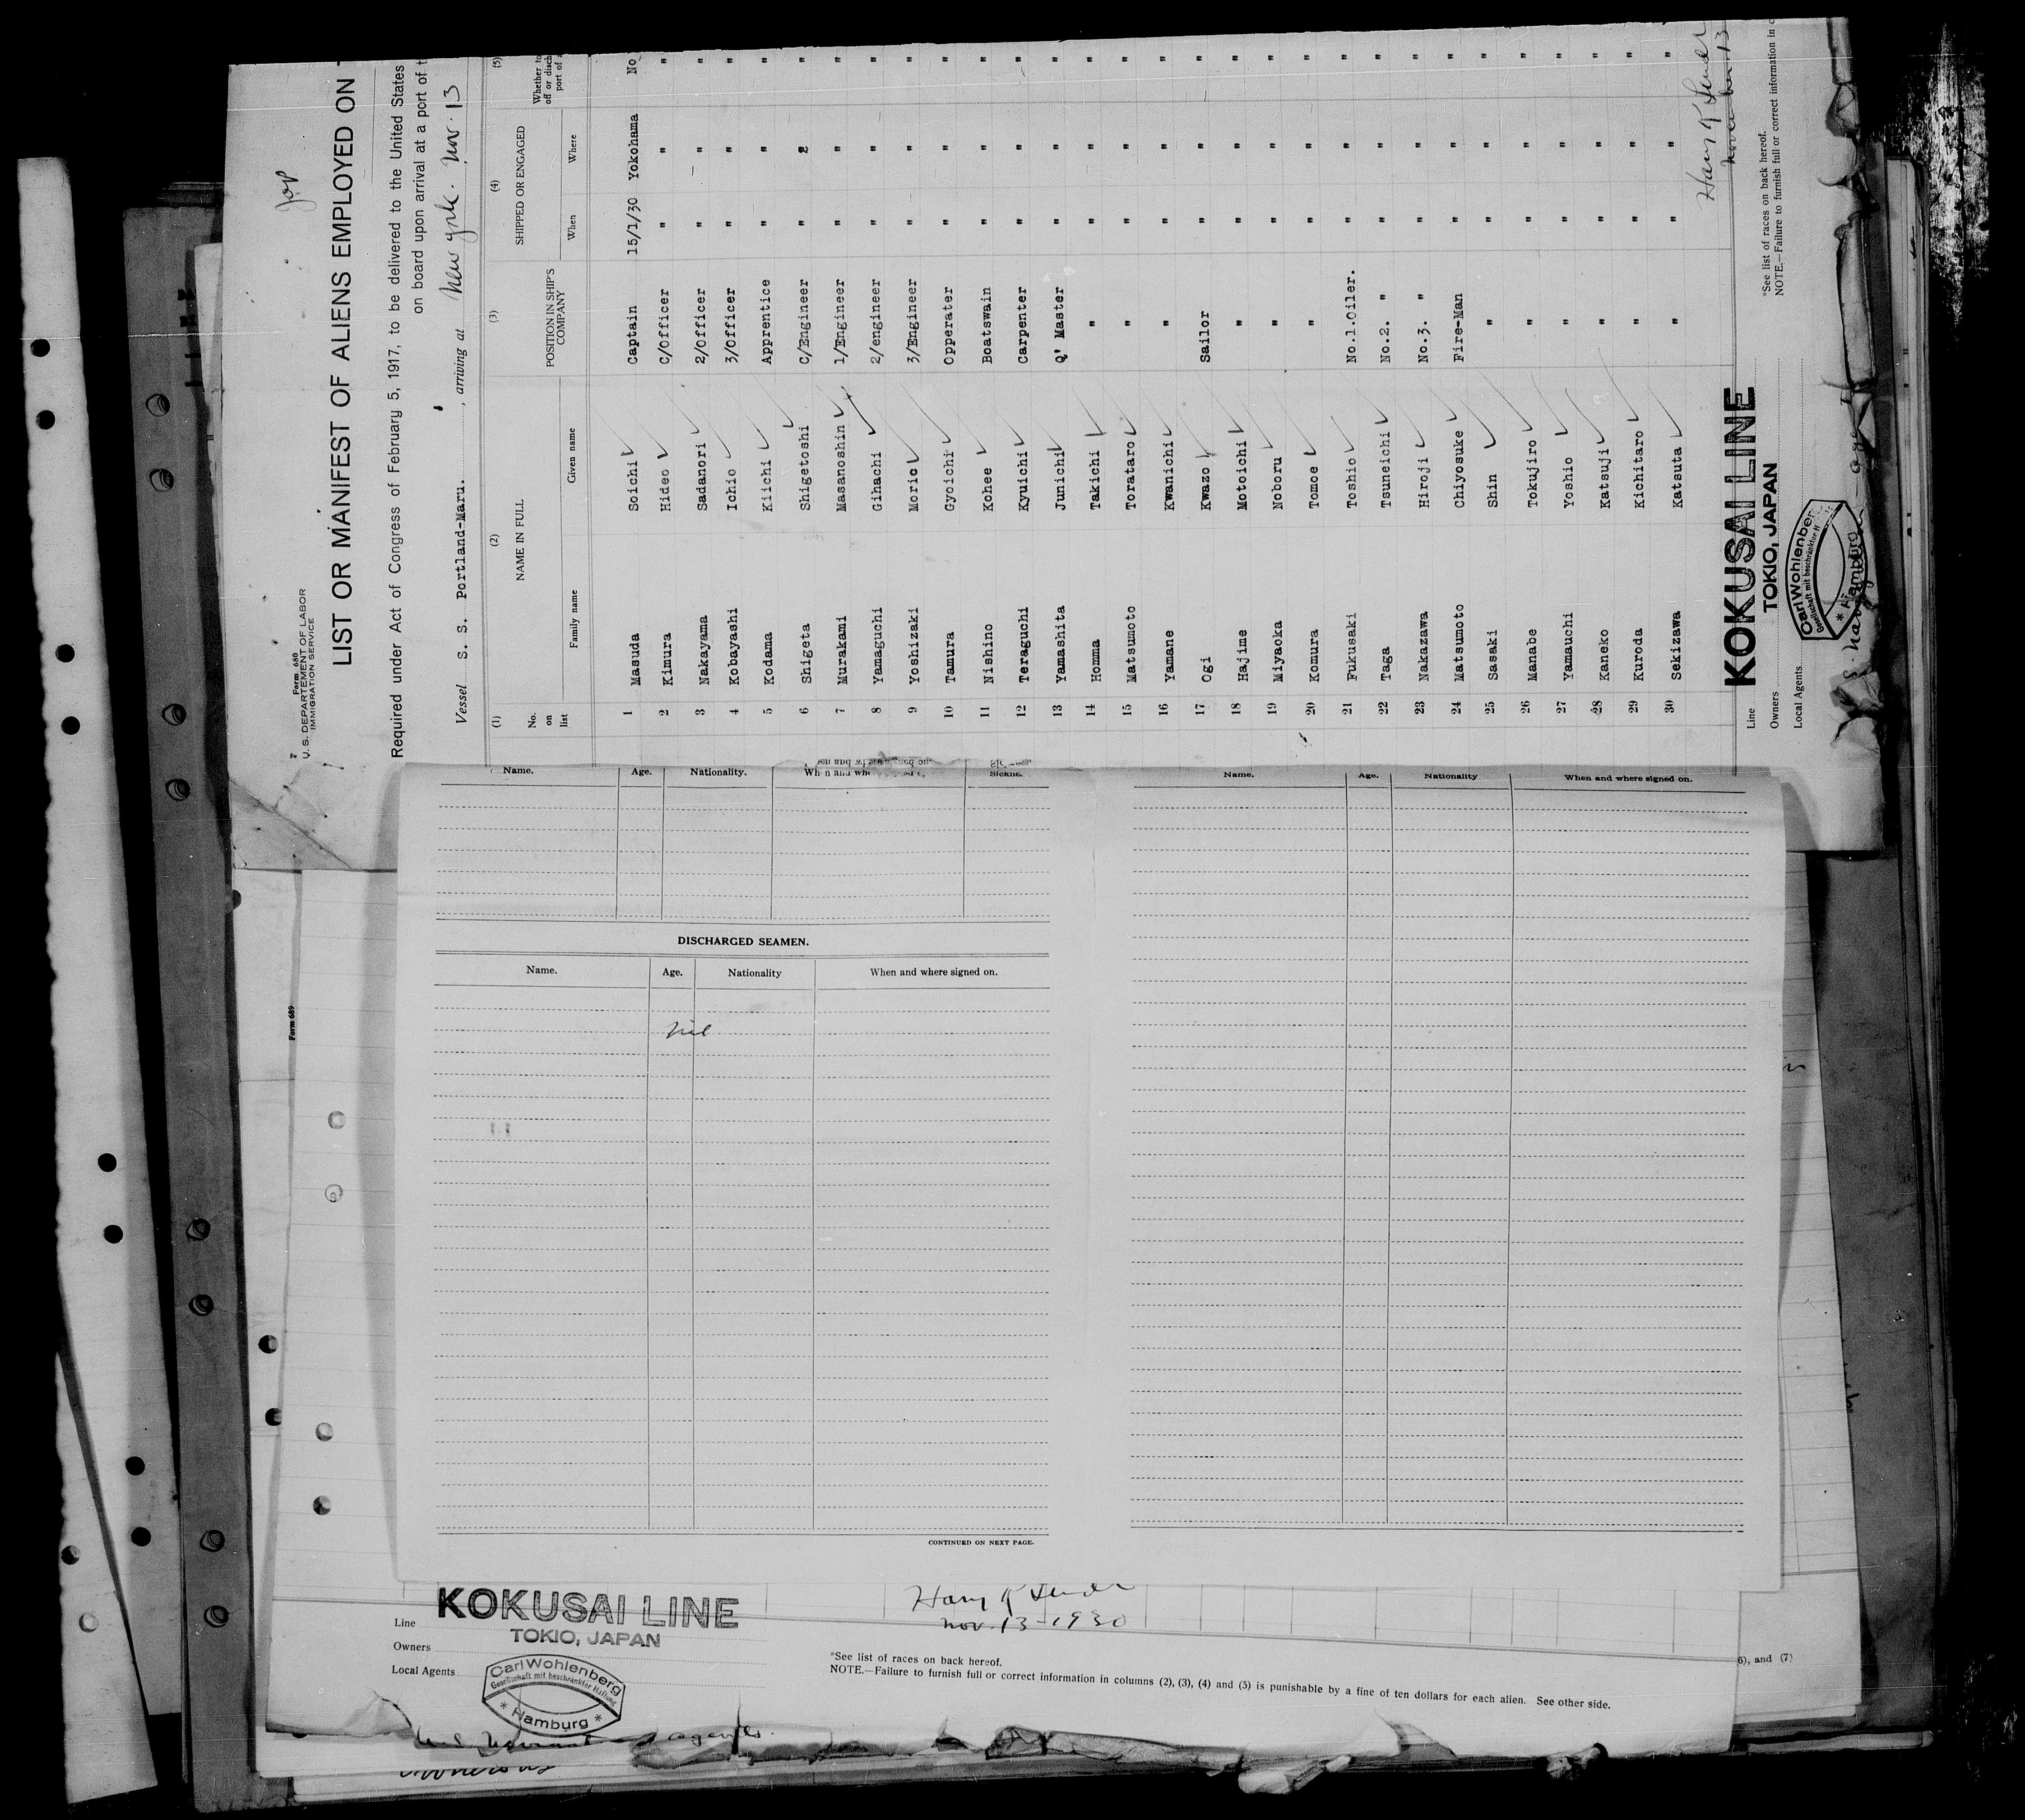 Jap
7
Form 680
U. S. DEPARTMENT OF LABOR
IMMIGRATION SERVICE
LIST OR MANIFEST OF ALIENS EMPLOYED ON
Required under Act of Congress of February 5, 1917, to be delivered to the United States
on board upon arrival at a port of t
Vessel S. S. Portland-Maru. , arriving at New York. Nov. 13
(1) (2) (3) (4) (5)
No. on list NAME IN FULL POSITION IN SHIP'S COMPANY SHIPPED OR ENGAGED Whether to off or disch port of
Family name Given name When Where
1 Masuda Soichi Captain 15/1/30 Yokohama No
2 Kimura Hideo C/Officer " " "
3 Nakayama Sadanori 2/Officer " " "
4 Kobayashi Ichio 3/Officer " " "
5 Kodama Kiichi Apprentice " " "
6 Shigeta Shigetoshi C/Engineer " " "
7 Murakami Masanoshin 1/Engineer " " "
8 Yamaguchi Gihachi 2/engineer " " "
9 Yoshizaki Moric 3/Engineer " " "
10 Tamura Gyoichi Opperater " " "
11 Nishino Kohee Boatswain " " "
12 Teraguchi Kyuichi Carpenter " " "
13 Yamashita Junichi Q' Master " " "
14 Homma Takichi " " " "
15 Matsumoto Torataro " " " "
16 Yamane Kwanichi " " " "
17 Ogi Kwazo Sailor " " "
18 Hajime Motoichi " " " "
19 Miyaoka Noboru " " " "
20 Komura Tomoe " " " "
21 Fukusaki Toshio No.1.Oiler. " " "
22 Taga Tsuneichi No.2. " " " "
23 Nakazawa Hiroji No.3. " " " "
24 Matsumoto Chiyosuke Fire-Man " " "
25 Sasaki Shin " " " "
26 Manabe Tokujiro " " " "
27 Yamauchi Yoshio " " " "
28 Kaneko Katsuji " " " "
29 Kuroda Kichitaro " " " "
30 Sekizawa Katsuta " " " "
Harry K
November 13
Line KOKUSAI LINE
Owners TOKIO, JAPAN
Local Agents
Carl Wohlenberg
Gesellschaft mit beschränkter H
* Hamburg
*See list of races on back hereof.
NOTE.—Failure to furnish full or correct information in c
Name. Age. Nationality. When and whe
Name. Age. Nationality When and where signed on.
DISCHARGED SEAMEN.
Name. Age. Nationality When and where signed on.
nil
CONTINUED ON NEXT PAGE.
Form 689
Line KOKUSAI LINE
Owners TOKIO, JAPAN
Local Agents
Carl Wohlenberg
Gesellschaft mit beschränkter Haftung
* Hamburg *
Nov. 13-1930
*See list of races on back hereof.
NOTE.—Failure to furnish full or correct information in columns (2), (3), (4) and (5) is punishable by a fine of ten dollars for each alien. See other side.
6), and (7)
agents.